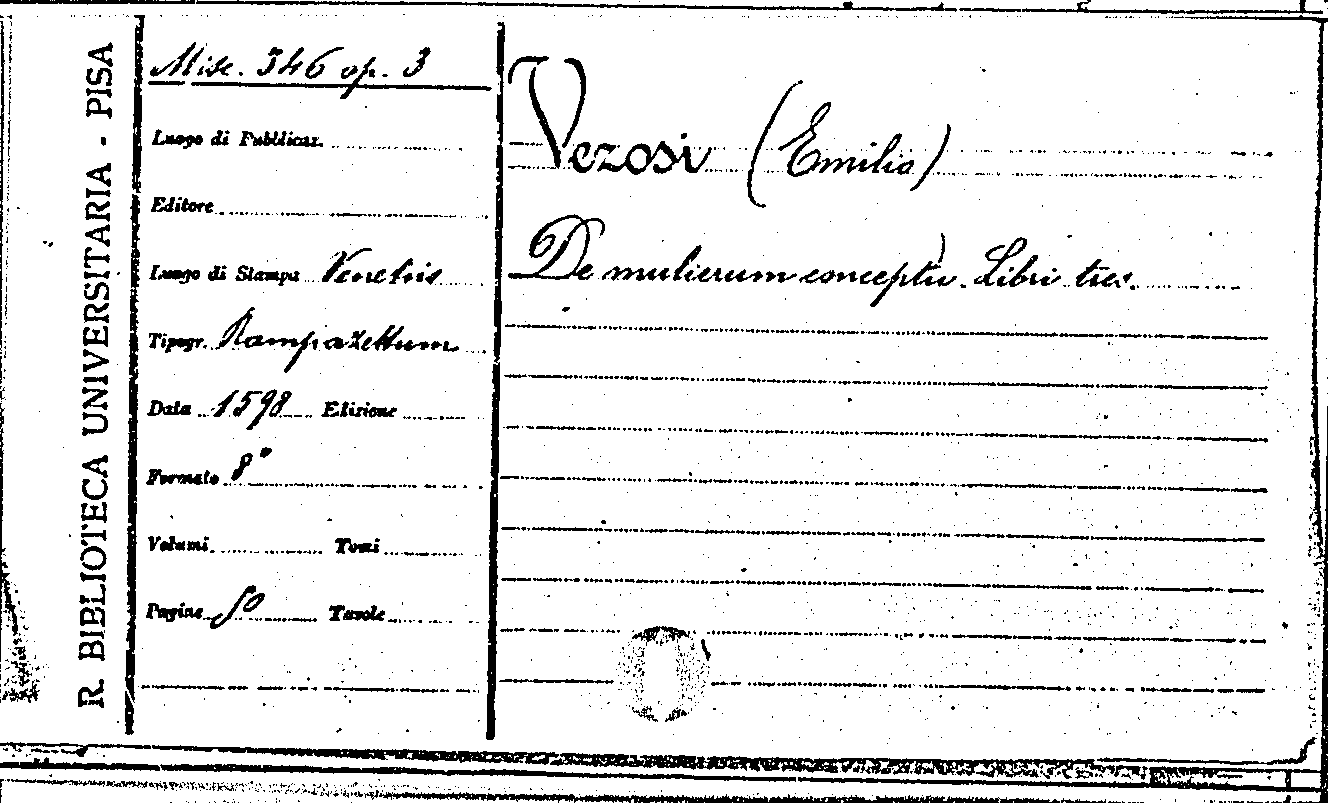 R. BIBLIOTECA UNIVERSITARIA - PISA
Misc. 346 op. 3
Luogo di Pubblicaz.
Editore
Luogo di Stampa Venetiis
Tipogr. Rampazettum
Data 1598 Edizione
Formato 8°
Volumi Tomi
Pagine 50 Tavole
Vezosi (Emilio)
De mulierum conceptu. Libri tres.